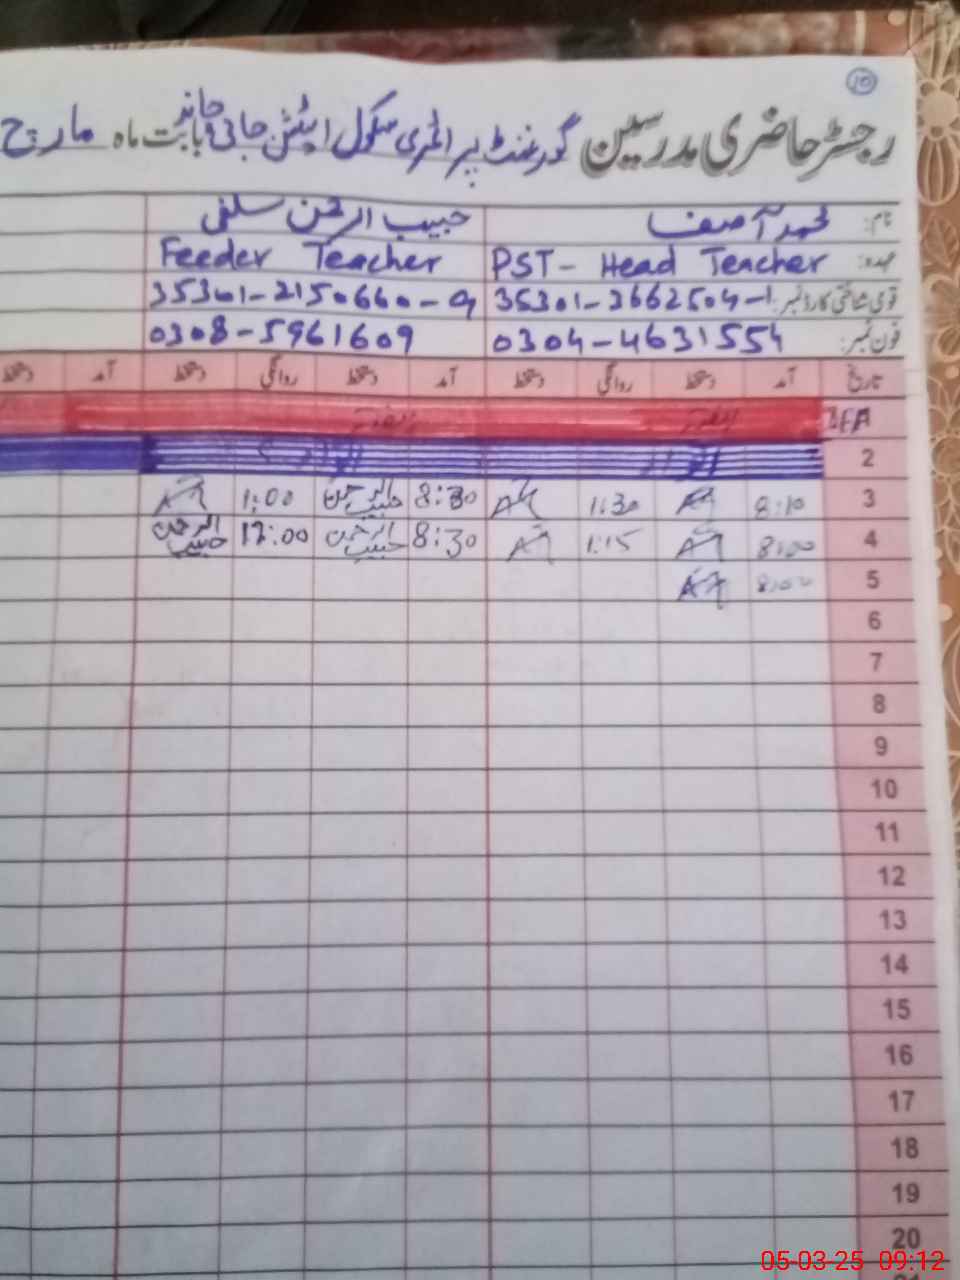 ۱۵
رجسٹر حاضری مدرسین گورنمنٹ پرائمری سکول اسٹیشن جائی چاند بابت ماہ مارچ
نام: محمد آصف حبیب الرحمن سلفی
عہدہ: PST - Head Teacher Feeder Teacher
قومی شناختی کارڈ نمبر: 35301-3662504-1 35301-2150660-9
فون نمبر: 0304-4631554 0308-5961609
تاریخ آمد دستخط روانگی دستخط آمد دستخط روانگی دستخط آمد دستخط
ہفتہ ہفتہ
2 اتوار اتوار
3 8:10 1:30 8:30 حبیب الرحمن 1:00
4 8:00 1:15 8:30 حبیب الرحمن 12:00 حبیب الرحمن
5 8:00
6
7
8
9
10
11
12
13
14
15
16
17
18
19
20
05-03-25 09:12